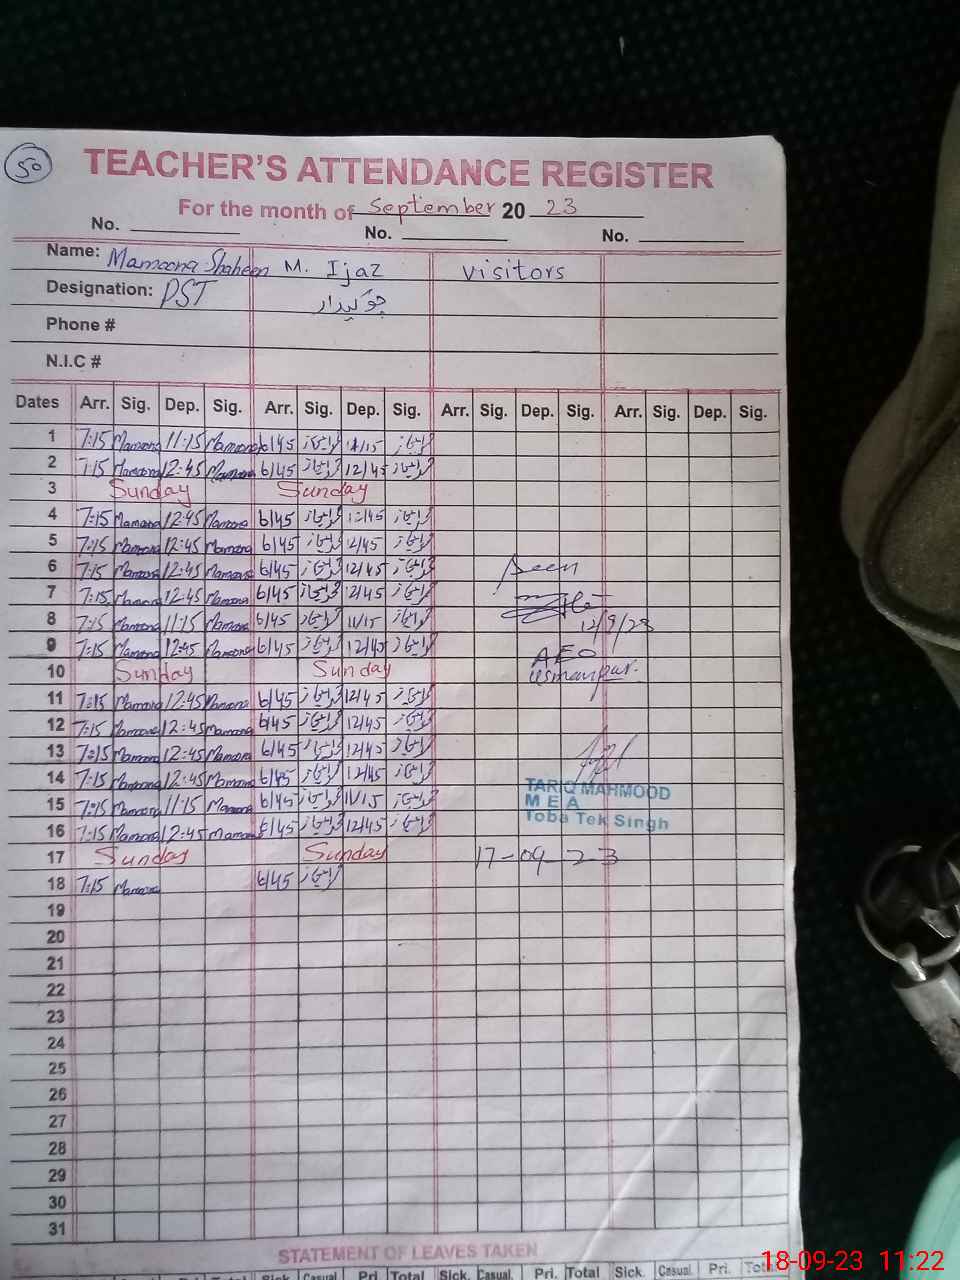 50
TEACHER'S ATTENDANCE REGISTER
For the month of September 20 23
No. No. No.
Name: Mamoona Shaheen M. Ijaz visitors
Designation: PST چوکیدار
Phone #
N.I.C #
Dates Arr. Sig. Dep. Sig. Arr. Sig. Dep. Sig. Arr. Sig. Dep. Sig. Arr. Sig. Dep. Sig.
1 7:15 Mamoona 11:15 Mamoona 6/45 اعجاز 11/15 اعجاز
2 7:15 Mamoona 12:45 Mamoona 6/45 اعجاز 12/45 اعجاز
3 Sunday Sunday
4 7:15 Mamoona 12:45 Mamoona 6/45 اعجاز 12/45 اعجاز
5 7:15 Mamoona 12:45 Mamoona 6/45 اعجاز 12/45 اعجاز
6 7:15 Mamoona 12:45 Mamoona 6/45 اعجاز 12/45 اعجاز Seen
7 7:15 Mamoona 12:45 Mamoona 6/45 اعجاز 12/45 اعجاز
8 7:15 Mamoona 11:15 Mamoona 6/45 اعجاز 11/15 اعجاز 12/9/23
9 7:15 Mamoona 12:45 Mamoona 6/45 اعجاز 12/45 اعجاز AEO
10 Sunday Sunday Usmanpur.
11 7:15 Mamoona 12:45 Mamoona 6/45 اعجاز 12/45 اعجاز
12 7:15 Mamoona 12:45 Mamoona 6/45 اعجاز 12/45 اعجاز
13 7:15 Mamoona 12:45 Mamoona 6/45 اعجاز 12/45 اعجاز
14 7:15 Mamoona 12:45 Mamoona 6/45 اعجاز 12/45 اعجاز TARIQ MAHMOOD
15 7:15 Mamoona 11:15 Mamoona 6/45 اعجاز 11/15 اعجاز M E A
16 7:15 Mamoona 12:45 Mamoona 6/45 اعجاز 12/45 اعجاز Toba Tek Singh
17 Sunday Sunday 17-09-23
18 7:15 Mamoona 6/45 اعجاز
19
20
21
22
23
24
25
26
27
28
29
30
31
STATEMENT OF LEAVES TAKEN
Total Sick. Casual Pri. Total Sick. Casual. Pri. Total Sick. Casual. Pri. Total
18-09-23 11:22